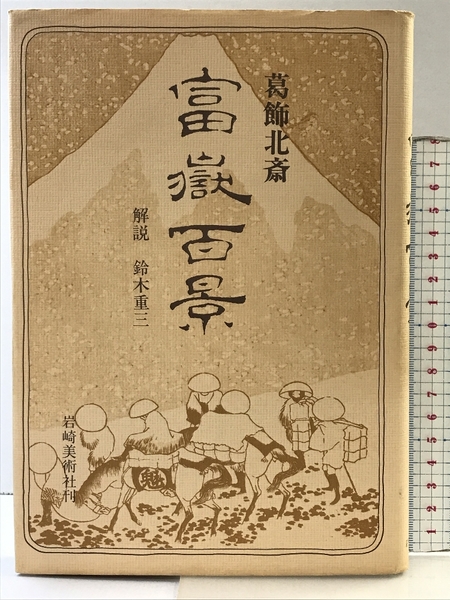 葛飾北斎
富嶽百景
解説 鈴木重三
岩崎美術社刊
魁